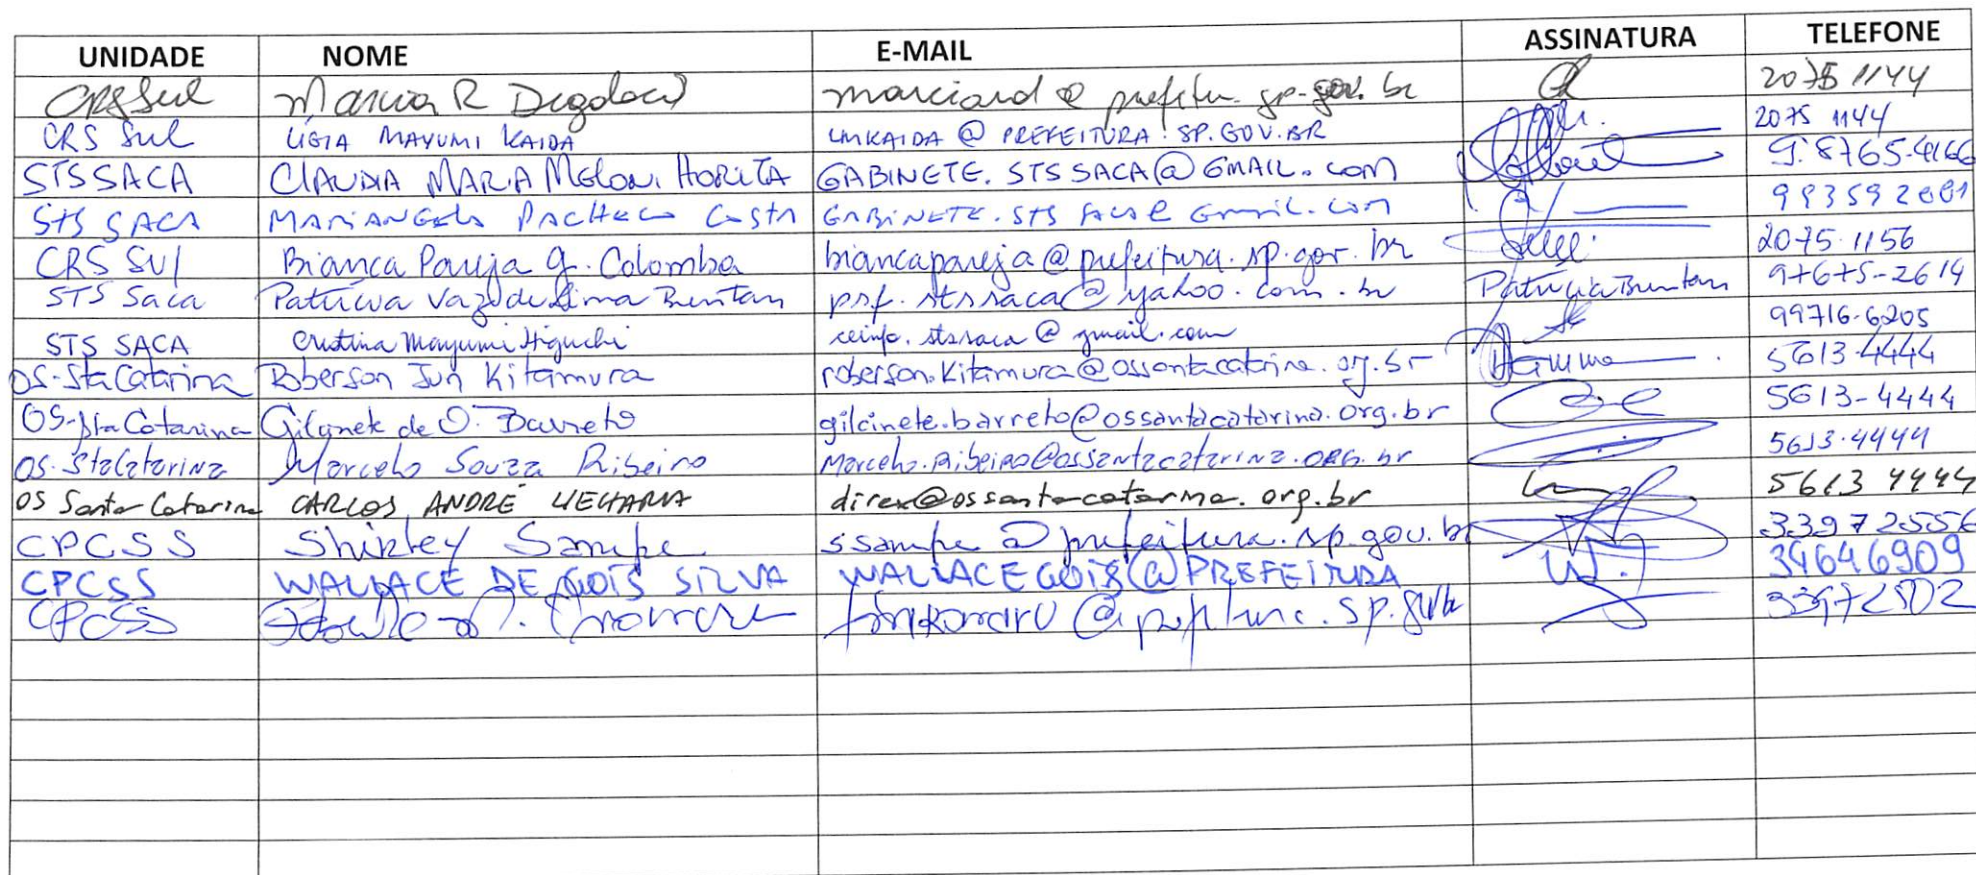 UNIDADE NOME E-MAIL ASSINATURA TELEFONE
CRS Sul Marcia R marciard@ 2075 1144
CRS Sul LÍGIA MAYUMI KAIDA LMKAIDA @ PREFEITURA. SP.GOV.BR 2075 1144
STS SACA CLAUDIA MARIA MELONI HORITA GABINETE.STSSACA@GMAIL.com 9.8765-4166
STS SACA MARIANGELA PACHECO COSTA GABINETE.STS SACA@Gmail.com 983592001
CRS SUl Bianca Pareja G. Colomba biancapareja@prefeitura.sp.gov.br 2075.1156
STS Saca Patrícia Vaz de Lima Buntan psf.stssaca@yahoo.com.br Patrícia Buntan 97675-2614
STS SACA Cristina Mayumi Higuchi ceinfo.stssaca@gmail.com 99716-6205
OS-Sta Catarina Roberson Jun Kitamura roberson.Kitamura@ossantacatarina.org.br 5613-4444
OS-Sta Catarina de O. Barreto gilcinete.barreto@ossantacatarina.org.br 5613-4444
OS-Sta Catarina Marcelo Souza Ribeiro Marcelo.Ribeiro@ossantacatarina.ORG.br 5613-4444
OS Santa Catarina CARLOS ANDRÉ UEHARA direx@ossantacatarina.org.br 5613 4444
CPCSS Shirley Sampe ssampe@prefeitura.sp.gov.b 33972556
CPCSS WALLACE DE GOIS SILVA WALLACEGOIS@PREFEITURA 34646909
CPCSS